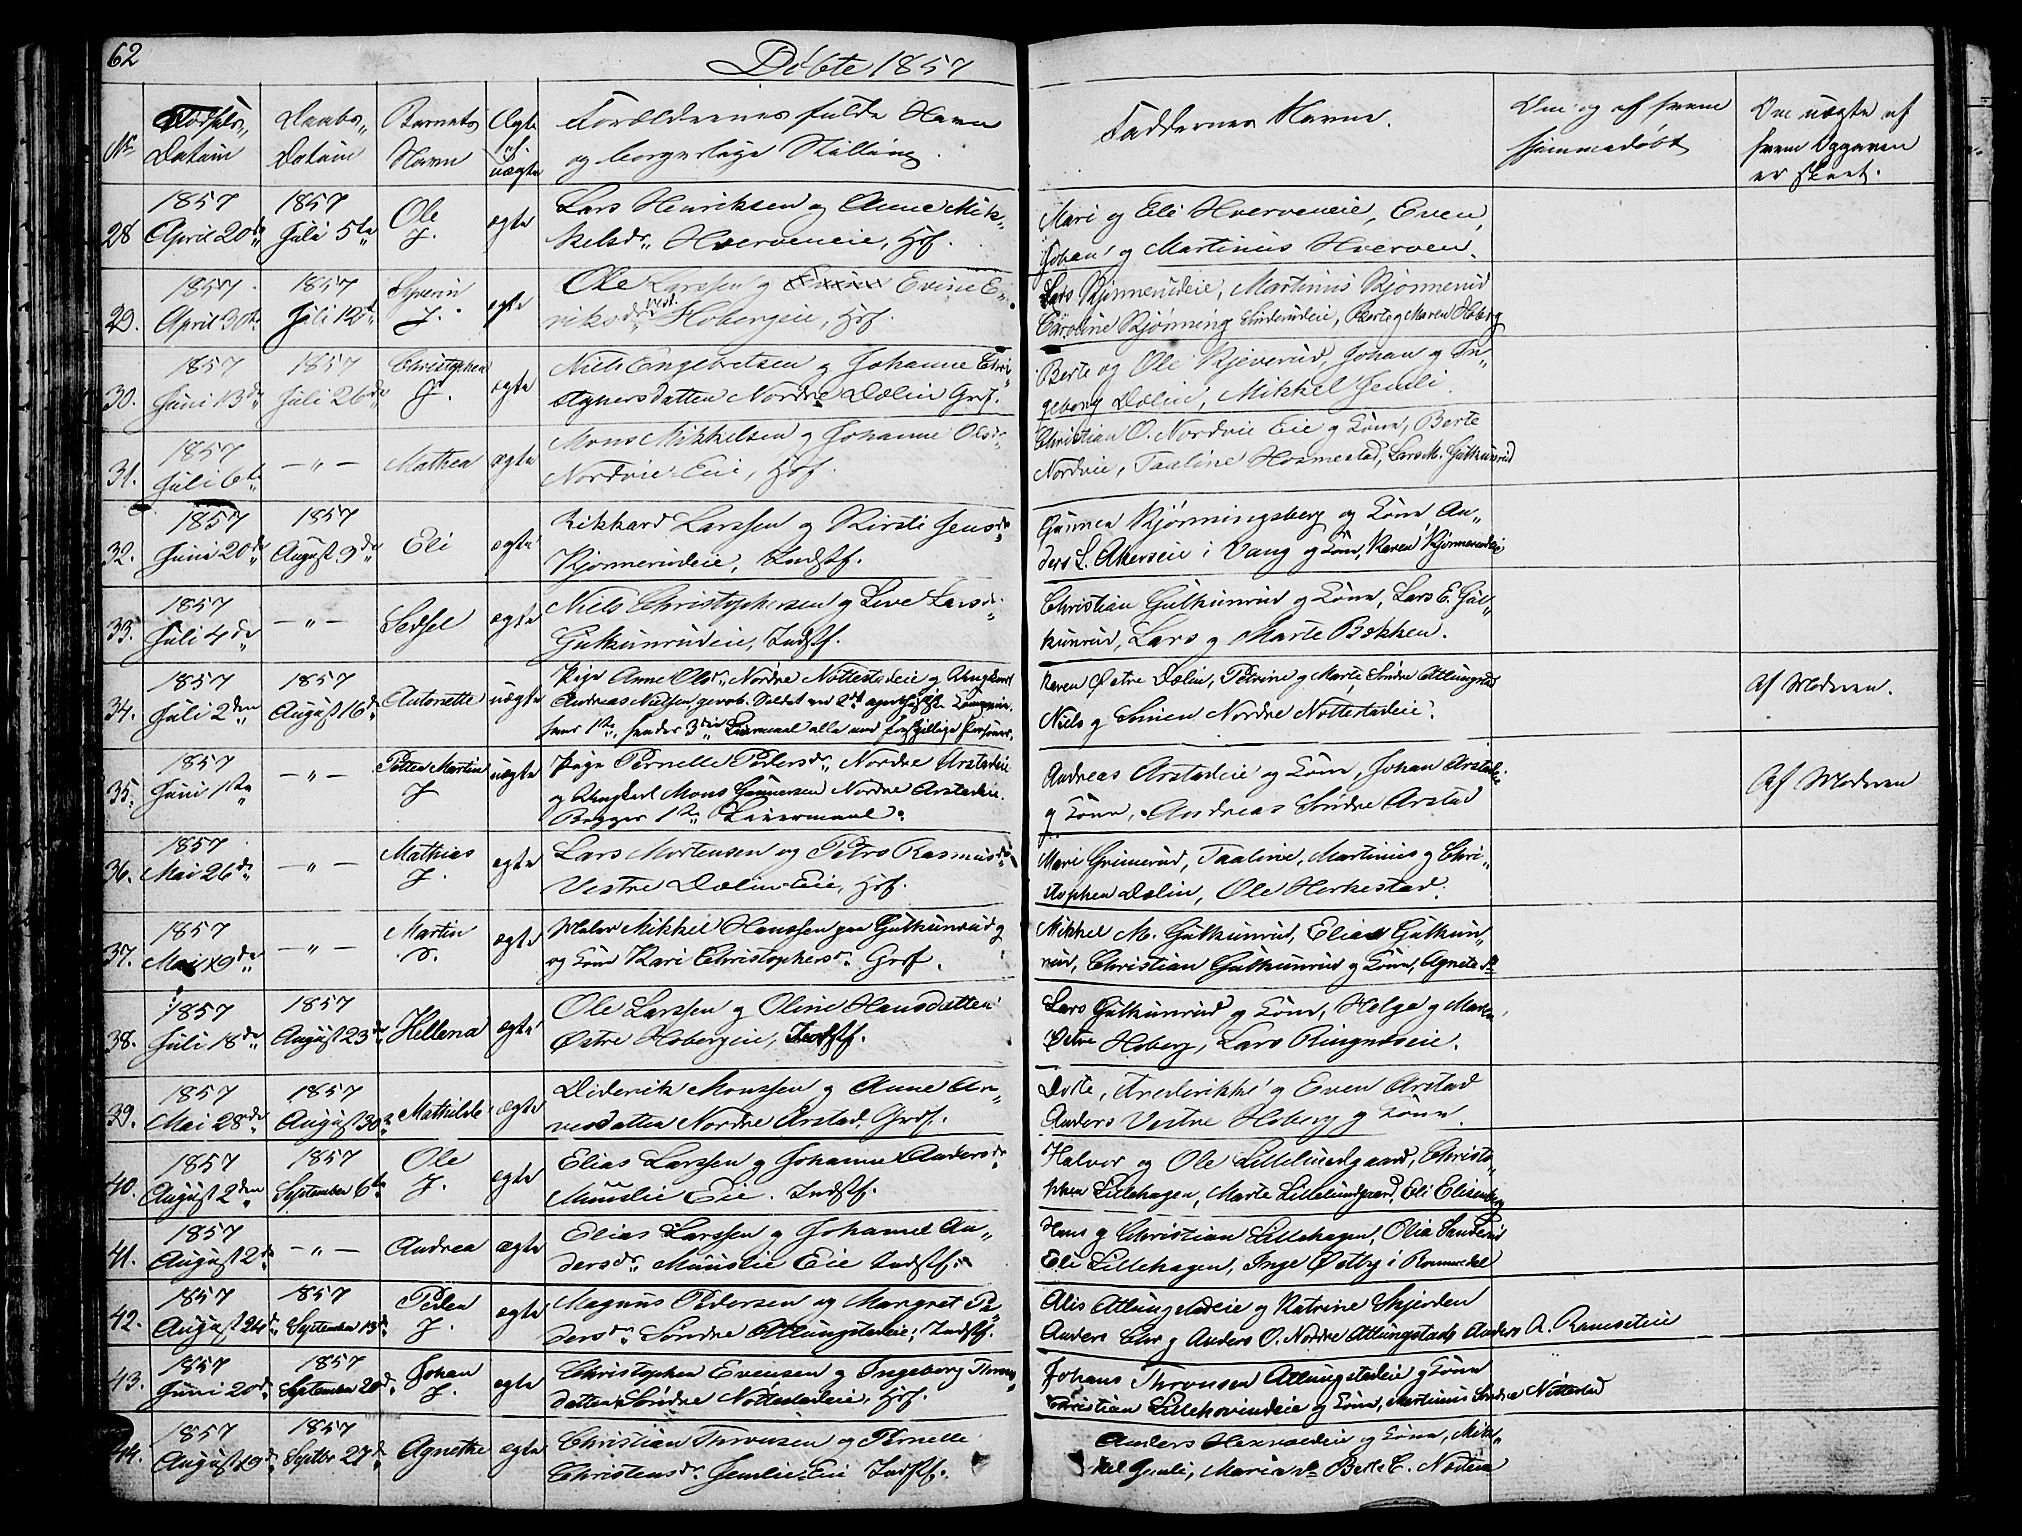 62
Døbte 1857
No
Fødsels-
Datum
Daabs-
Datum
Barnets
Navn
Ægte
el.
uægte
Forældrenes fulde Navn
og borgerlige Stilling.
Faddernes Navne.
Om og af hvem
hjemmedøbt
Om uægte af
hvem Opgaven
er skeet.
28
1857
April 20de
1857
Juli 5te
Ole
J.
ægte
Lars Henriksen og Anne Mik-
kelsdr. Hverveneie, Hf.
Mari og Eli Hverveneie, Even,
Johan og Martinus Hverven.
29.
1857
April 30te
1857
Juli 12te
Syverin
J.
ægte
Ole Larssen og Evine E-
riksdr. vest. Hobergeie, Hf.
Lars Kjønnerudeie, Martinus Kjønnerud
Caroline Kjønning Berte og Maren Hoberg
30.
1857
Juni 13de
1857
Juli 26de
Christopher
J.
ægte
Niels Engebretsen og Johanne Chri-
stophersdatter Nordre Dælin Grf.
Berte og Ole Kjeverud, Johan og In-
geborg Dælin, Mikkel Jemli
31.
1857
Juli 6te
— " —
Mathea
ægte
Mons Mikkelsen og Johanne Olsdr.
Nordvie Eie, Hf.
Christian O. Nordvie Eie og Kone, Berte
Nordvie, Taaline Hosmestad, Lars M. Gulkunrud
32.
1857
Juni 20de
1857
August 9de
Eli
ægte
Rikhard Larssen og Kirsti Jensdr.
Kjønnerudeie, Indstf.
Gunner Kjønningsberg og Kone An-
ders L. Akerseie i Vang og Kone, Karen Kjønnerudeie
33.
1857
Juli 4de
— " —
Sedsel
ægte
Niels Christophersen og Live Larsdr.
Gulkunrudeie, Indstf.
Christian Gulkunrud og Kone, Lars E. Gul-
kunrud, Lars og Marte Bekken.
34.
1857
Juli 2den
1857
August 16de
Antonette
uægte
Pige Anne Olsdr. Nordre Nøttestadeie og Ungkarl
Andreas Nielsen, gevorb. Soldat ved 2det
hans 1te, hendes 3die Leiermaal alle med forskjellige Personer.
Karen Østre Dælin, Petrine og Marte Søndre Attlungstad
Niels og Simen Nordre Nøttestadeie.
Af Moderen.
35.
1857
Juni 1ste
— " —
Petter Martin
J
uægte
Pige Pernelle Pedersdr. Nordre Arstadeie
og Ungkarl Mons Gunnersen Nordre Arstadeie.
Begges 1ste Leiermaal.
Andreas Arstadeie og Kone, Johan Arstadeie
og Kone, Andreas Søndre Arstad
Af Moderen
36.
1857
Mai 26de
— " —
Mathias
J.
ægte
Lars Mortensen og Petro Rasmusdr.
Vestre Dælin-Eie, Hf.
Mari Grimerud, Taaline, Martinus og Chri-
stopher Dælin, Ole Horkestad.
37.
1857
Mai 19de
— " —
Martin
ægte
Maler Mikkel Hanssen paa Gulkunrud og
og Kone Kari Christophersdr. Grf.
Mikkel M. Gulkunrud, Elias Gulkun-
rud, Christian Gulkunrud og Kone, Agnete
38.
1857
Juli 18de
1857
August 23de
Hellena
ægte
Ole Larssen og Oline Hansdatter
Østre Hobergeie, Indstf.
Lars Gulkunrud og Kone, Helge og Marte
Østre Hoberg, Lars Ringneseie.
39.
1857
Mai 28de
1857
August 30te
Mathilde
ægte
Diderik Monssen og Anne Ar-
vesdatter Nordre Arstad, Grdf.
Dorte, Frederikke og Even Arstad
Anders Vestre Hoberg og Kone.
40.
1857
August 2den
1857
September 6te
Ole
J.
ægte
Elias Larssen og Johanne Andersdr.
Muuslie Eie. Indstf.
Halvor og Ole Lillelundgaard, Christo-
pher Lillehagen, Marte Lillelundgaard, Eli Elisenberg
41.
1857
August 2de
— " —
Andrea
ægte
Elias Larssen og Johanne An-
dersdr. Muuslie Eie Indstf.
Hans og Christian Lillehagen, Olia Sanderud
Eli Lillehagen, Inge Østby i Romedal
42.
1857
August 24de
1857
September 13de
Peder
J.
ægte
Magnus Pedersen og Margret Pe-
dersdr. Søndre Attlungstadeie, Indstf.
Alis Attlungstadeie og Katrine Skjerden
Anders Chr og Anders O. Nordre Attlungstad, Anders A. Ramseteie
43.
1857
Juni 20de
1857
September 20de
Johan
J.
ægte
Christopher Evensen og Ingeborg Thron-
datter Søndre Nøttestadeie, Hf.
Johans Thronsen Attlungstadeie og Kone
Christian Lillehovendeie og Kone, Martinus Søndre Nøttestad
44.
1857
August 19de
1857
Septbr 27de
Agnethe
ægte
Christian Thronsen og Pernelle
Christensdr. Jemlie-Eie Indstf.
Anders og Kone, Mik-
kel Jemli, Maria Berte C.